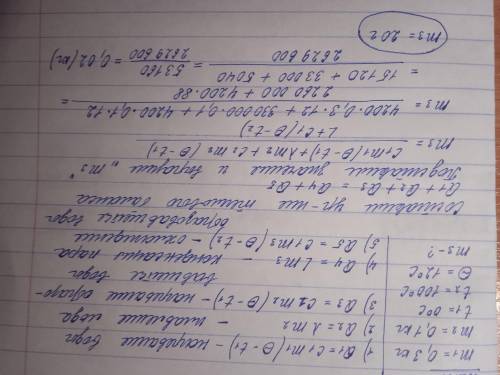 m₁ = 0,3 кг
m₂ = 0,1 кг
t₁ = 0°C
t₂ = 100°C
Θ = 12°C
m₃ - ?
1) Q₁ = C₁m₁(Θ-t₁) - нагревание воды
2) Q₂ = λm₂ - плавление льда
3) Q₃ = C₂m₂(Θ-t₁) - нагревание образо-
вавшейся воды
4) Q₄ = Lm₃ - конденсация пара
5) Q₅ = C₁m₃(Θ-t₂) - охлаждение
образовавшейся воды
Составим ур-ние теплового баланса
Q₁ + Q₂ + Q₃ = Q₄ + Q₅
Подставим значение и выразим „m₃"
m₃ = C₁m₁(Θ-t₁) + λm₂ + C₂m₂(Θ-t₁) / L + C₁(Θ-t₂)
m₃ = 4200·0,3·12 + 330000·0,1 + 4200·0,1·12 / 2260 000 + 4200·88 =
= 15120 + 33 000 + 5040 / 2629 600 = 53160 / 2629 600 = 0,02 (кг)
m₃ = 20 г